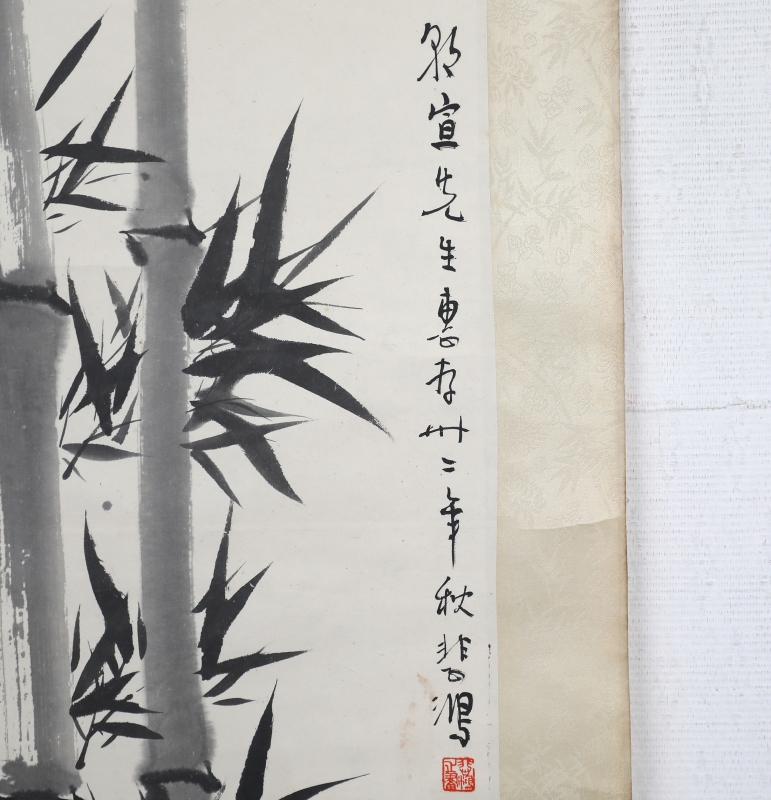 宣先生惠存卅二年秋悲鴻